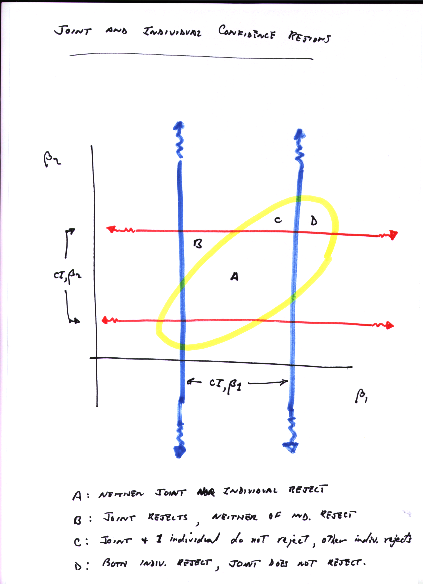 JOINT AND INDIVIDUAL CONFIDENCE REGIONS
β2
C D
B
CI,β2
A
CI,β1
β1
A: NEITHER JOINT NOR INDIVIDUAL REJECT
B: JOINT REJECTS, NEITHER OF IND. REJECT
C: JOINT + 1 individual do not reject, other indiv. rejects
D: BOTH INDIV. REJECT, JOINT DOES NOT REJECT.